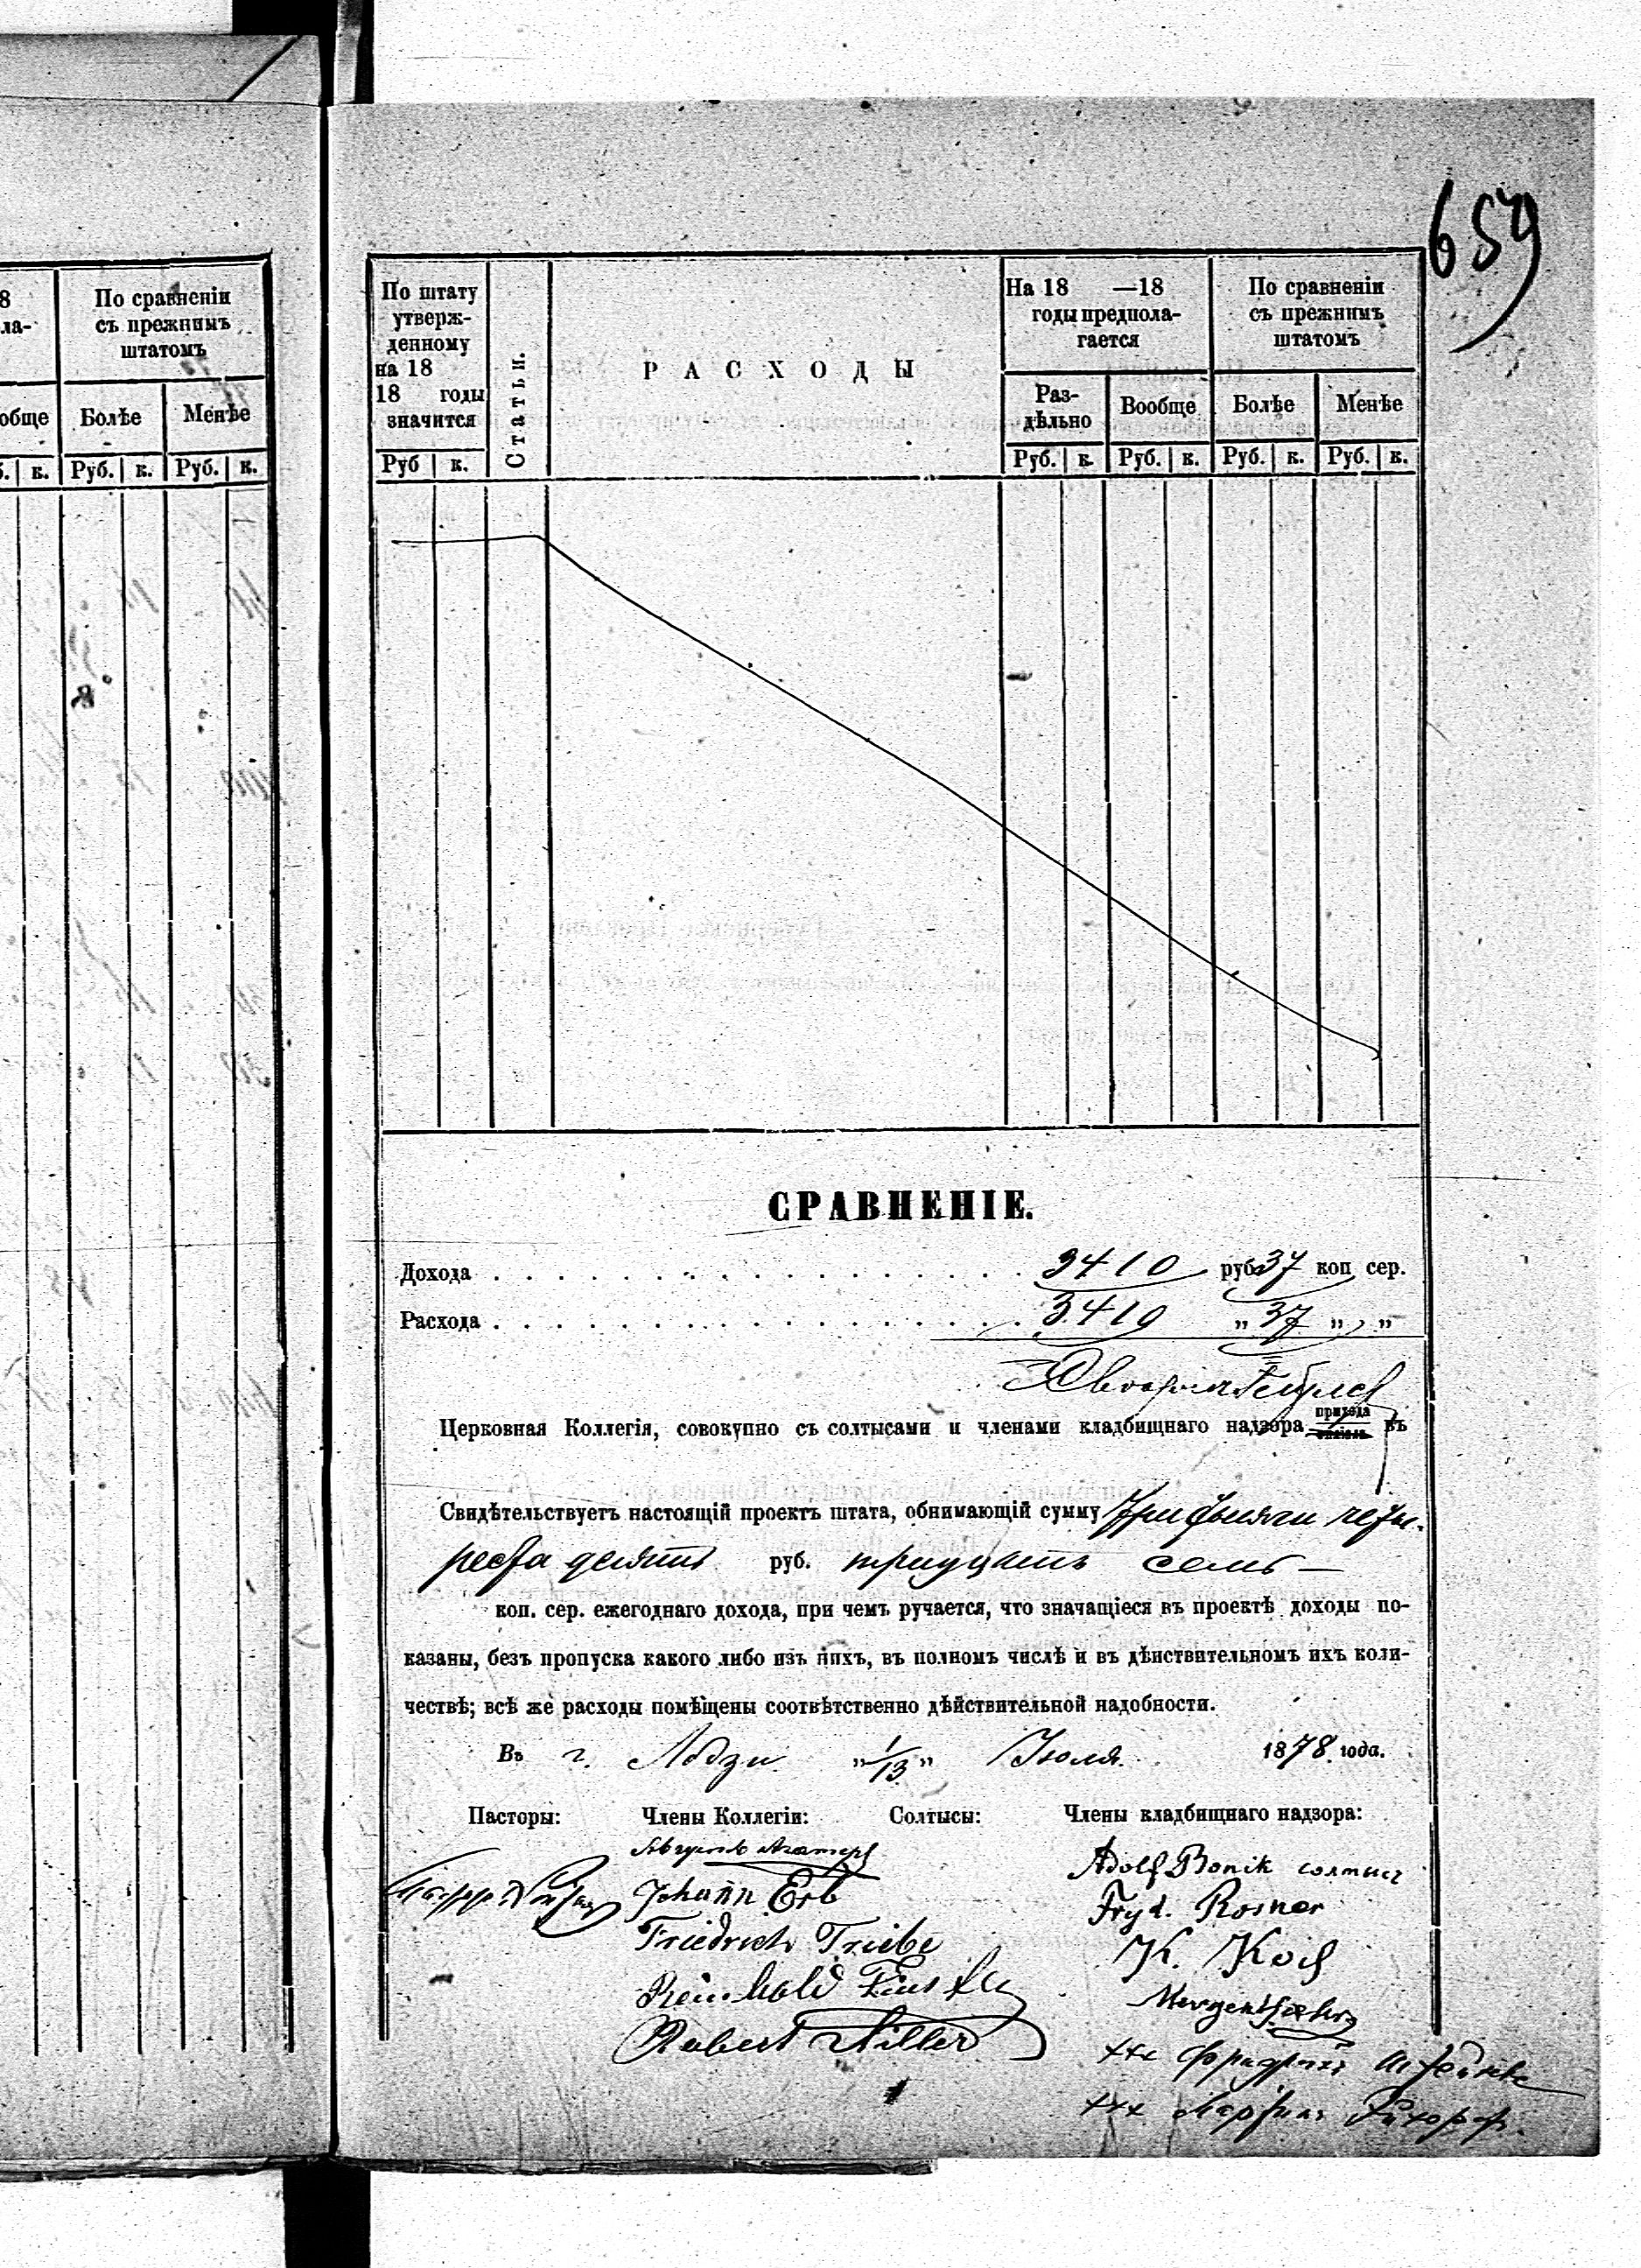 659
8
ла-
ообще
б. к.
По сравненіи
съ прежнимъ
штатомъ
Болѣе Менѣе
Руб. к. Руб. к.
По штату
утверж-
денному
на 18
18 годы
значится
Руб к.
Статьи.
РАСХОДЫ
На 18 —18
годы предпола-
гается
Раз-
дѣльно
Вообще
Руб. к. Руб. к.
По сравненіи
съ прежнимъ
штатомъ
Болѣе Менѣе
Руб. к. Руб. к.
СРАВНЕНІЕ.
Дохода 3410 руб 37 коп сер.
Расхода 3410 „ 37 „ „
Церковная Коллегія, совокупно съ солтысами и членами кладбищнаго надзора прихода въ
Свидѣтельствуетъ настоящій проектъ штата, обнимающій сумму три тысячи четы-
реста десять руб. тридцать семь —
коп. сер. ежегоднаго дохода, при чемъ ручается, что значащіеся въ проектѣ доходы по-
казаны, безъ пропуска какого либо изъ нихъ, въ полномъ числѣ и въ дѣйствительномъ ихъ коли-
чествѣ; всѣ же расходы помѣщены соотвѣтственно дѣйствительной надобности.
Въ г. Лодзи. „1/13„ Іюля. 1878 года.
Пасторы: Члены Коллегіи: Солтысы: Члены кладбищнаго надзора:
Adolf Bonik солтыс
Johann Erb
Fryd. Rosner
Friedrich Triebe
K. Koch
Reinhold
Robert
xxx Фридрихъ
xxx Мартинъ